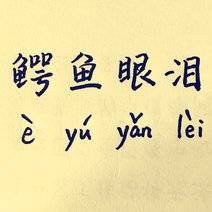 鳄鱼眼泪
è yú yǎn lèi